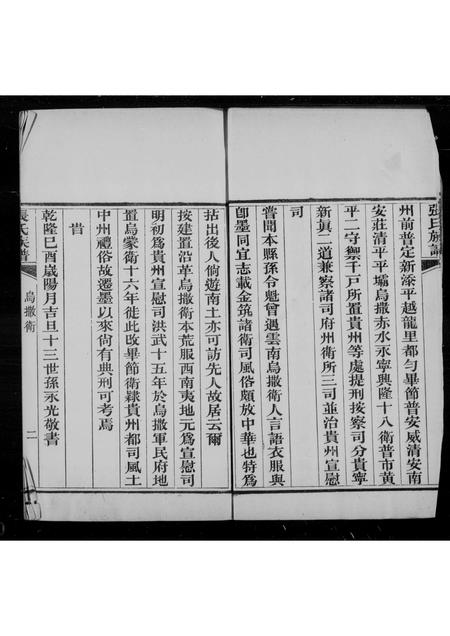 張氏族譜
州前普定新添平越龍里都勻畢節普安威清安南
安莊清平平壩烏撒赤水永寧興隆十八衛普市黃
平二守禦千戶所置貴州等處提刑按察司分貴寧
新眞二道兼察諸司府州衛所三司並治貴州宣慰
司
嘗聞本縣孫令魁曾過雲南烏撒衛人言語衣服與
卽墨同宜志載金筑諸衛司風俗頗放中華也特為
拈出後人倘遊南土亦可訪先人故居云爾
按建置沿革烏撒衛本荒服西南夷地元為宣慰司
明初為貴州宣慰司洪武十五年於烏撒軍民府地
置烏蒙衛十六年徙此改畢節衛隸貴州都司風土
中州禮俗故遷墨以來尙有典刑可考焉
旹
乾隆己酉歲陽月吉旦十三世孫永光敬書
張氏族譜
烏撒衛
二